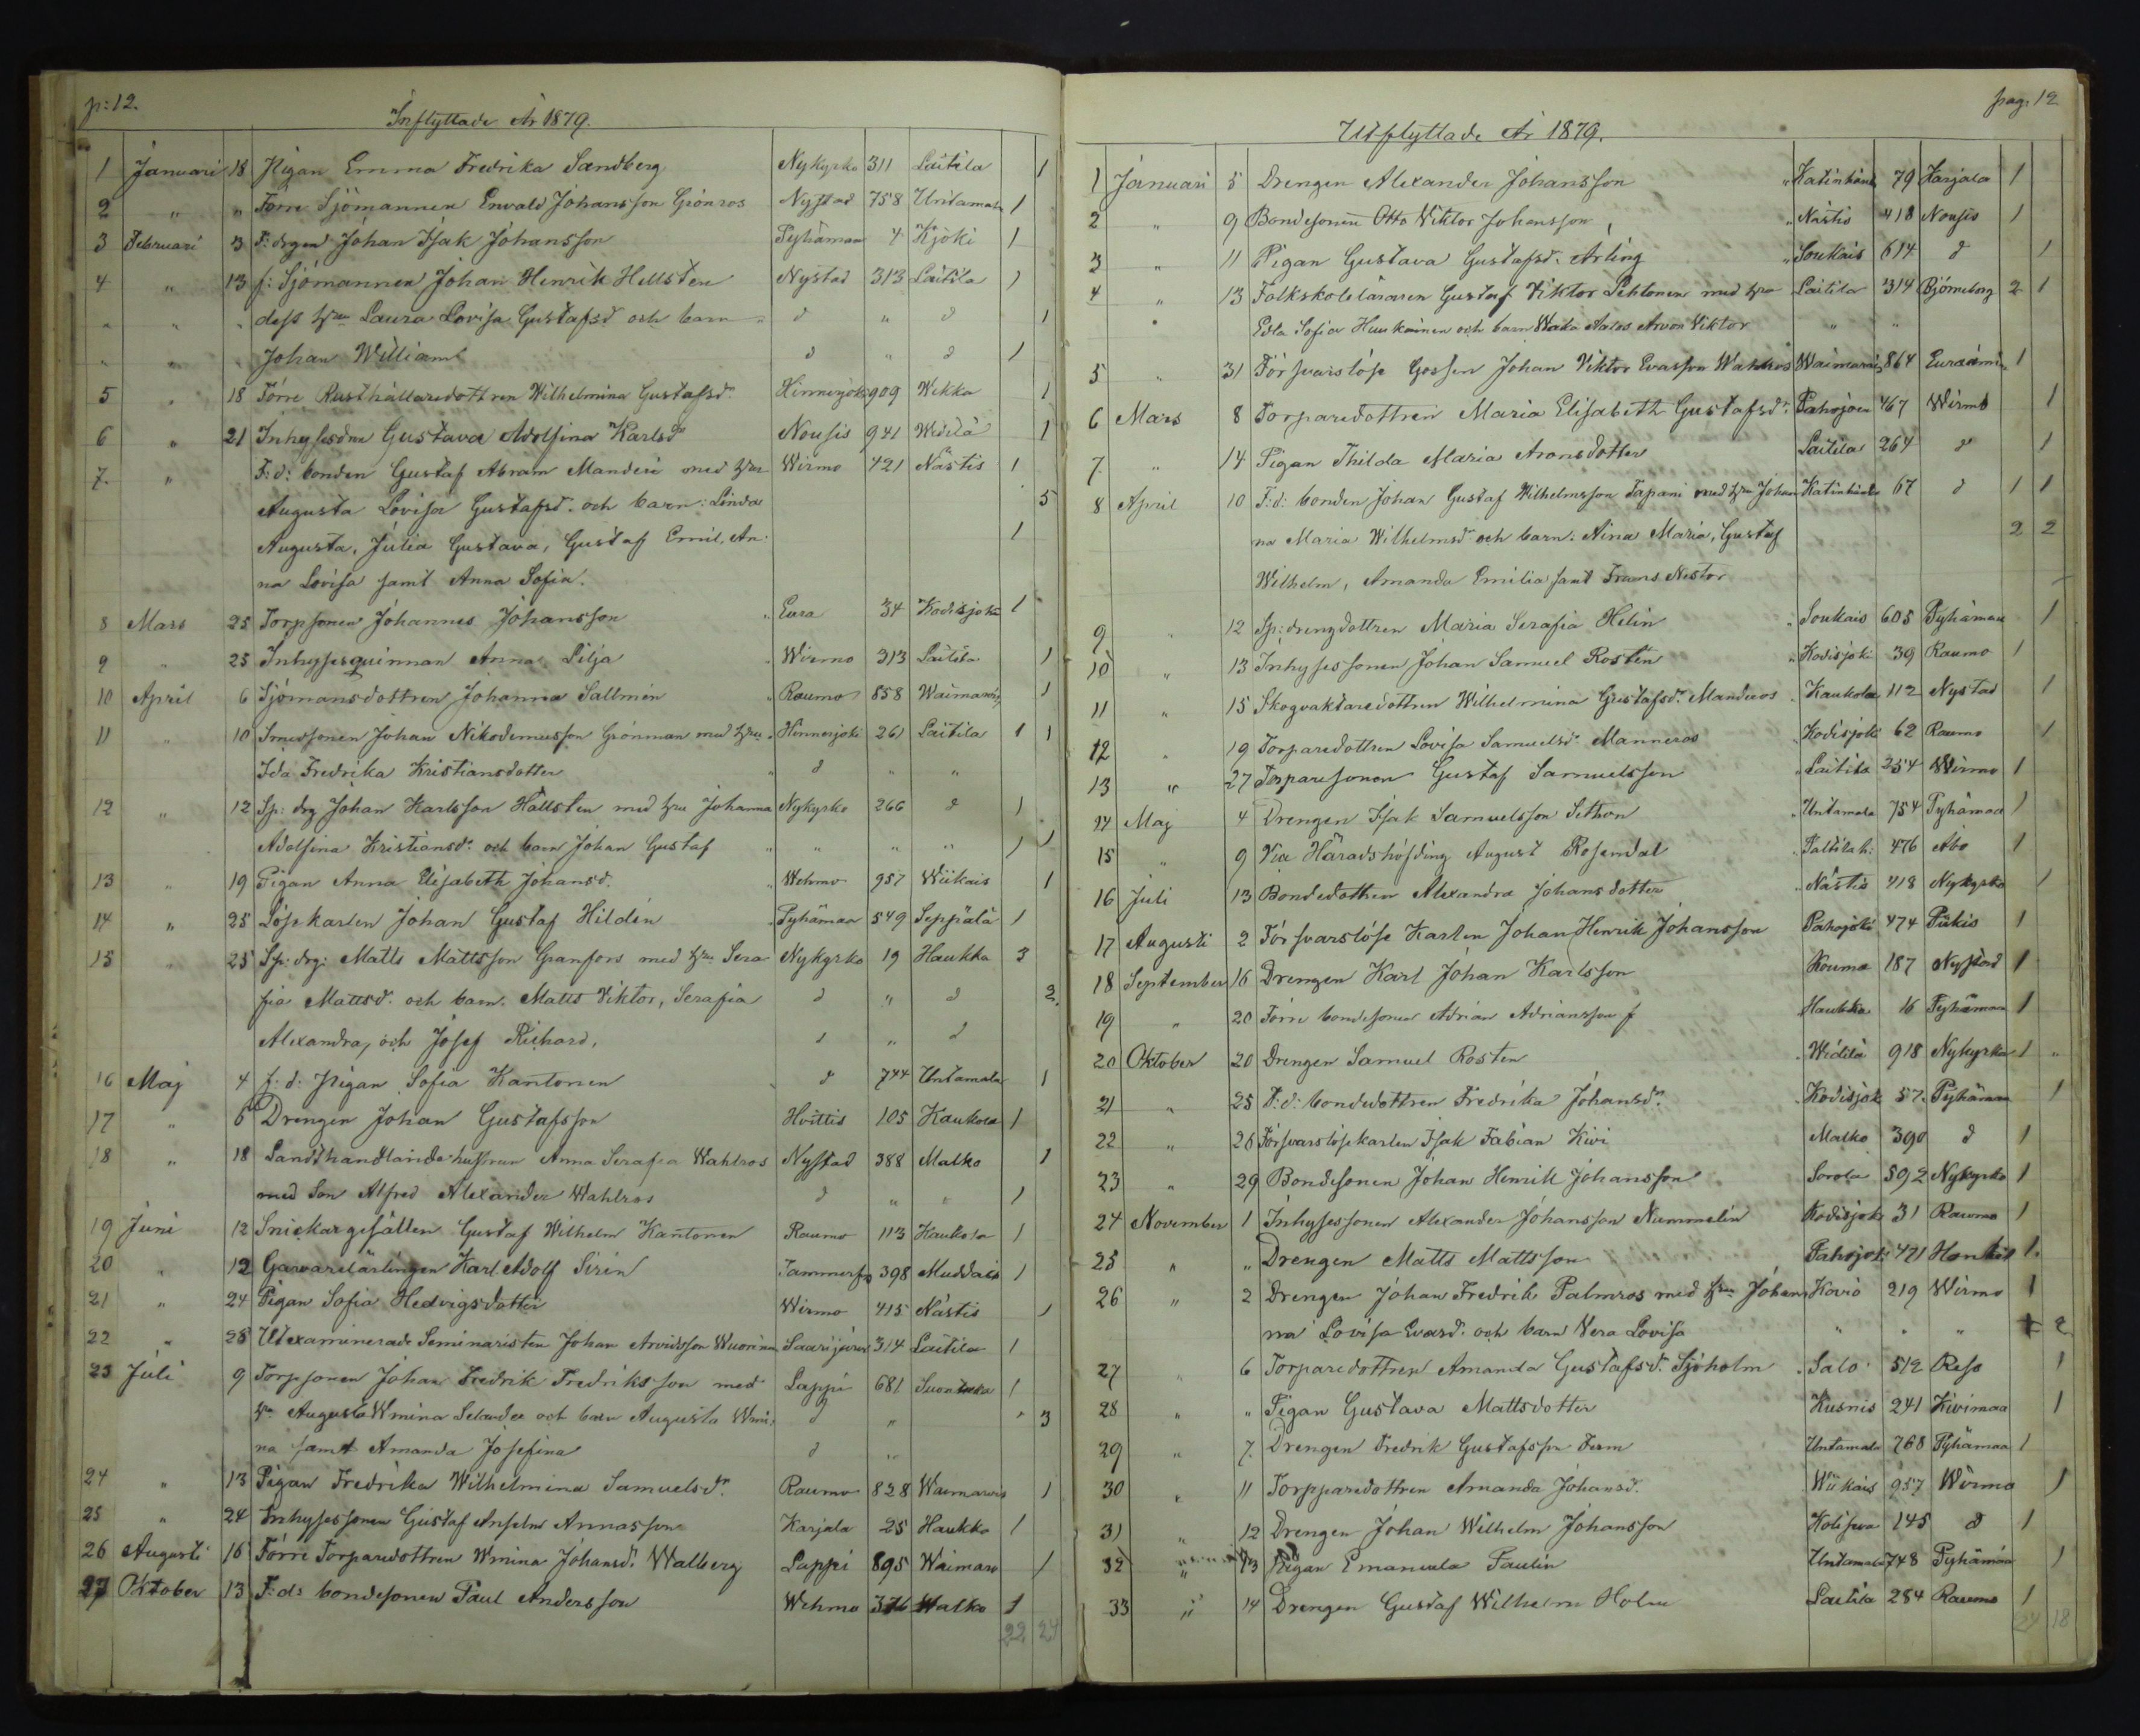 p: 12.
Inflyttade År 1879.
1 Januari 18 Pigan Emma Fredrika Sandberg Nykyrko 311 Laitila 1
2 " " Förre Sjömannen Envald Johansson Grönros Nystad 758 Untamala 1
3 Februari 3 F: drgen Johan Isak Johansson Pyhämaa 4 Kjöki 1
4 " 13 f: Sjömannen Johan Henrik Hellsten Nystad 313 Laitila 1
" " " dess hru Laura Lovisa Gustafsd och barn d " d 1
" " " Johan William d " d 1
5 " 18 Förre Rusthållaredottren Wilhelmina Gustafsdr Hinnerjoki 909 Wekka 1
6 " 21 Inhysesdn Gustava Adolfina Karlsdr Nousis 941 Widilä 1
7. " F: d: bonden Gustaf Abram Manderi med hru Wirmo 421 Nästis 1
Augusta Lovisa Gustafsd. och barn: Linda 5
Augusta, Julia Gustava, Gustaf Emil, An: 1
na Lovisa samt Anna Sofia.
8 Mars 25 Torpsonen Johannes Johansson Eura 34 Kodisjoki 1
9 " 25 Inhysesquinnan Anna Lilja Wirmo 313 Laitila 1
10 April 6 Sjömansdottren Johanna Sallmén Raumo 858 Waimaro 1
11 " 10 Smedsonen Johan Nikodemusson Grönman med hru Hinnerjoki 261 Laitila 1 1
Ida Fredrika Kristiansdotter d " "
12 " 12 Sp: drg Johan Karlsson Hällsten med hru Johanna Nykyrko 266 d 1
Adolfina Kristiansd. och barn Johan Gustaf " " " 1 1
13 " 19 Pigan Anna Elisabeth Johansd. Wehmo 957 Wiikais 1
14 " 25 Löskarlen Johan Gustaf Hildén Pyhämaa 549 Seppälä 1
15 " 25 Sp: drg: Matts Mattsson Granfors med hru Sera Nykyrko 19 Haukka 3
fia Mattsd. och barn. Matts Viktor, Serafia d " d 2.
Alexandra, och Josef Richard, d " d
16 Maj 4 f: d: Pigan Sofia Kantonen d 744 Untamala 1
17 " 6 Drengen Johan Gustafsson Hvittis 105 Kaukola 1
18 " 18 Landthandlande hustrun Anna Serafia Wahlros Nystad 388 Malko 1
med Son Alfred Alexander Wahlros d " " 1
19 Juni 12 Snickargesällen Gustaf Wilhelm Kantonen Raumo 113 Kaukola 1
20 " 12 Garvarelärlingen Karl Adolf Sirén Tammerfs 398 Muddais 1
21 " 24 Pigan Sofia Hedvigsdotter Wirmo 415 Nästis 1
22 " 28 Utexaminerade Seminaristen Johan Arvidsson Wuorinen Saarijärvi 314 Laitila 1
23 Juli 9 Torpsonen Johan Fredrik Fredriksson med Lappi 681 Suontaka 1
hru Augusta Wmina Selander och barn Augusta Wmi: d " " 3
na samt Amanda Josefina d "
24 " 13 Pigan Fredrika Wilhelmina Samuelsdr. Raumo 828 Waimaro 1
25 " 24 Inhysessonen Gustaf Anselm Annasson Karjala 25 Haukka 1
26 Augusti 16 Förre Torparedottren Wmina Johansd. Walberg Lappi 895 Waimaro 1
27 Oktober 13 F: d: bondesonen Paul Andersson Wehmo 376 Walko 1
22 24
pag: 12
Utflyttade År 1879.
1 Januari 5 Drengen Alexander Johansson Katinhänta 79 Karjala 1
2 " 9 Bondesonen Otto Viktor Johansson " Nästis 418 Nousis 1
3 " 11 Pigan Gustava Gustafsd. Arling " Soukais 614 d 1
4 " 13 Folkskoleläraren Gustaf Viktor Lehtonen med hru Laitila 314 Björneborg 2 1
Edla Sofia Huukainen och barn Aatos Arvon Viktor " "
5 " 31 Försvarslöse Gossen Johan Viktor Evasson Wahlros Waimaro 864 Euraåmi 1
6 Mars 8 Torparedottren Maria Elisabeth Gustafsdr Pahojoen 467 Wirmo 1
7. " 14 Pigan Thilda Maria Aronsdotter Laitila 264 d 1
8 April 10 F: d: bonden Johan Gustaf Wilhelmsson Tapani med hru Johan Katinhänta 67 d 1 1
na Maria Wilhelmsd och barn: Aina Maria, Gustaf 2 2
Wilhelm, Amanda Emilia samt Frans Nestor
9 " 12 Sp: drengdottren Maria Serafia Helin Soukais 605 Pyhämaa 1
10 " 13 Inhysessonen Johan Samuel Rostén " Kodisjoki 39 Raumo 1
11 " 15 Skogvaktaredottren Wilhelmina Gustafsd. Manderos Kaukola 112 Nystad 1
12 " 19 Torparedottren Lovisa Samuelsd. Manneros Kodisjoki 62 Raumo 1
13 " 27 Torparesonen Gustaf Samuelsson Laitila 254 Wirmo 1
14 Maj 4 Drengen Isak Samuelsson Sethon Untamala 754 Pyhämaa 1
15 " 9 Vice Häradshöfding August Rosendal Paltila h: 476 Åbo 1
16 Juli 13 Bondedottren Alexandra Johansdotter Nästis 418 Nykyrko 1
17 Augusti 2 Försvarslöse Karlen Johan Henrik Johansson Pahojoki 474 Pükis 1
18 September 16 Drengen Karl Johan Karlsson Kouma 187 Nystad 1
19 " 20 Förre bondesonen Adrian Adriansson Haukka 16 Pyhämaa 1
20 Oktober 20 Drengen Samuel Rosten Widilä 918 Nykyrko 1
21 " 25 F: d: bondedottren Fredrika Johansdr. Kodisjoki 57. Pyhämaa 1
22 " 26 Försvarslöse karlen Isak Fabian Kivi Malko 390 d 1
23 " 29 Bondesonen Johan Henrik Johansson Sorola 592 Nykyrko 1
24 November 1 Inhysessonen Alexander Johansson Nummelin Kodisjoki 31 Raumo 1
25 " " Drengen Matts Mattsson Pahojoki 471 Honkil 1.
26 " 2 Drengen Johan Fredrik Palmros med hru Johan Kovio 219 Wirmo 1
na Lovisa Evasd. och barn Vera Lovisa " " " 2
27 " 6 Torparedottren Amanda Gustafsd. Sjöholm Salo 512 Reso 1
28 " " Pigan Gustava Mattsdotter Kusnis 241 Kivimaa 1
29 " 7. Drengen Fredrik Gustafsson Ferm Untamala 768 Pyhämaa 1
30 " 11 Torpparedottren Amanda Johansd. Wiikais 957 Wirmo 1
31 " 12 Drengen Johan Wilhelm Johansson Kolseva 145 d 1
32 " 13 Pigan Emanuela Paulin Untamala 748 Pyhämaa 1
33 " 14 Drengen Gustaf Wilhelm Holm Laitila 284 Raumo 1
27 18